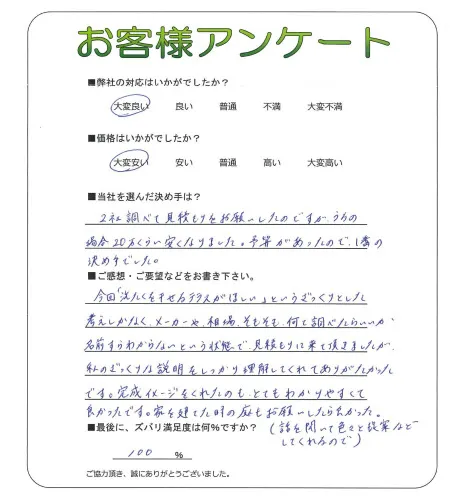 お客様アンケート
■弊社の対応はいかがでしたか？
大変良い 良い 普通 不満 大変不満
■価格はいかがでしたか？
大変安い 安い 普通 高い 大変高い
■当社を選んだ決め手は？
2社調べて見積もりをお願いしたのですが、うちの
場合20万くらい安くなりました。予算があったので、1番の
決め手でした。
■ご感想・ご要望などをお書き下さい。
今回「洗たくをほせるテラスがほしい」というざっくりとした
考えしかなく、メーカーや、相場、そもそも、何て調べたらいいか
名前すらわからないという状態で、見積もりに来て頂きましたが、
私のざっくりな説明をしっかり理解してくれてありがたかった
です。完成イメージをくれたのも、とてもわかりやすくて
良かったです。家を建てた時の庭もお願いしたら良かった。
■最後に、ズバリ満足度は何%ですか？
(話を聞いて色々と提案など
してくれるので)
100 %
ご協力頂き、誠にありがとうございました。